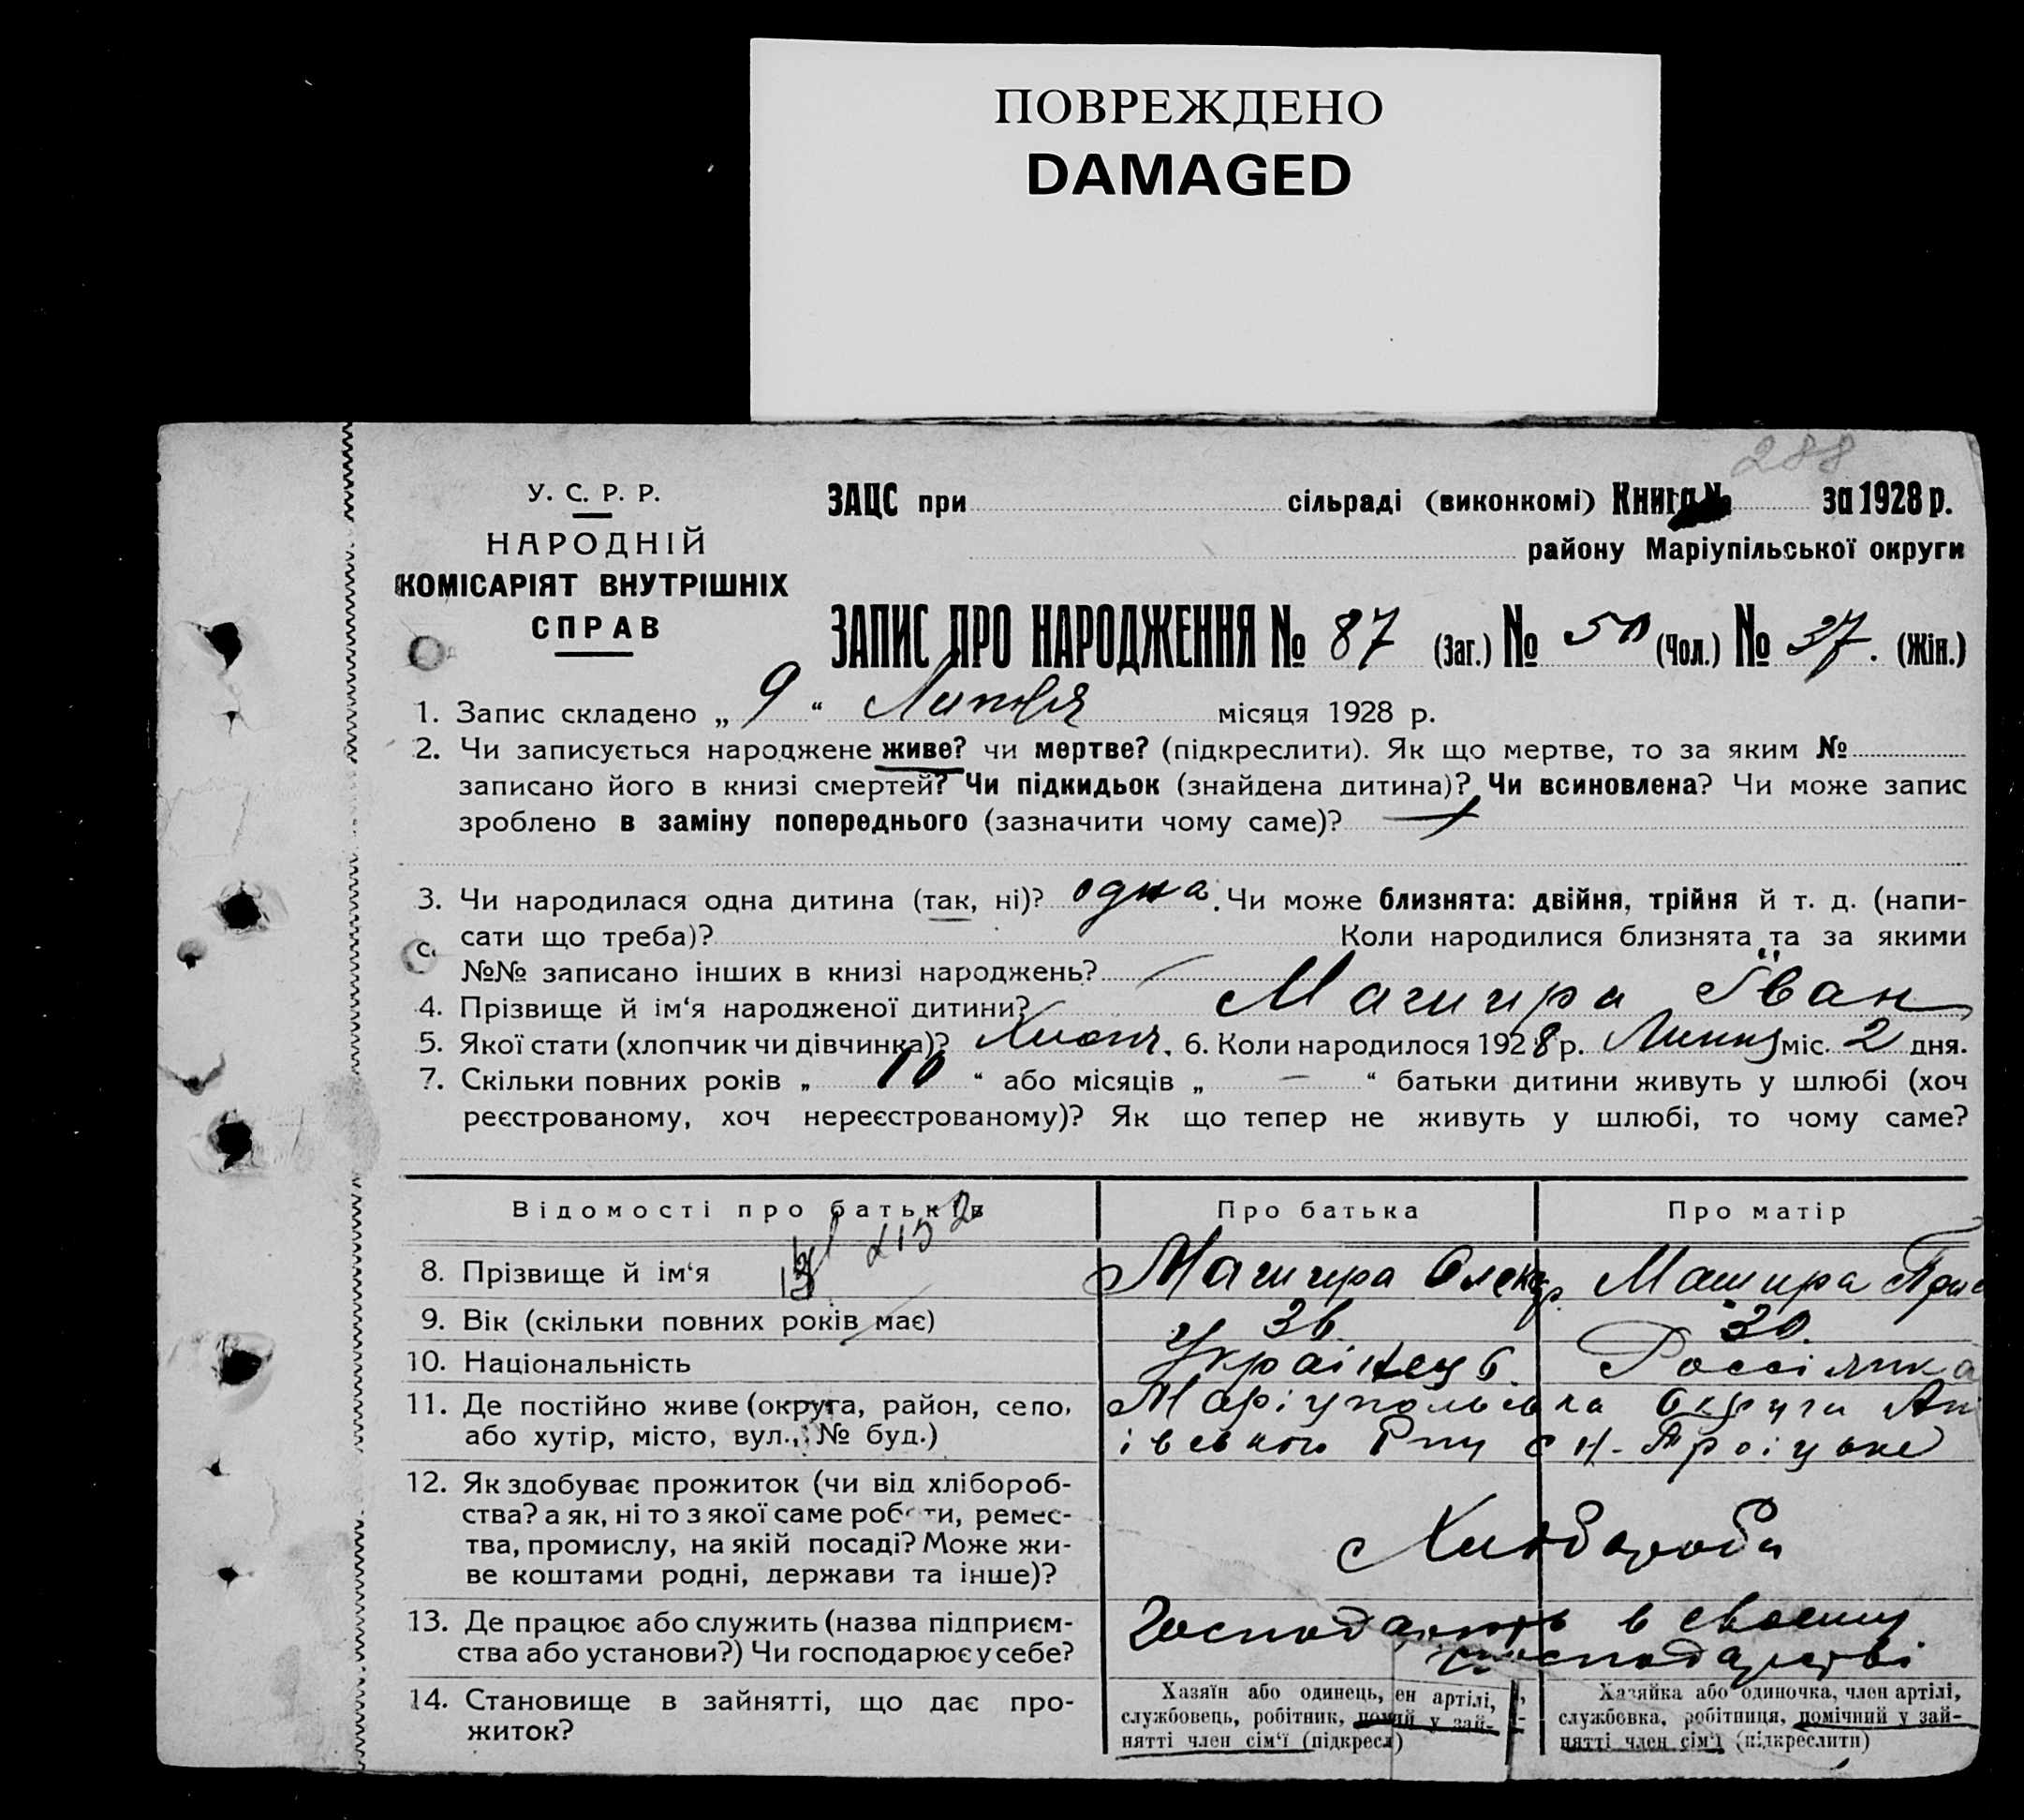 ПОВРЕЖДЕНО
DAMAGED
288
У. С. Р. Р.
НАРОДНІЙ
КОМІСАРІЯТ ВНУТРІШНІХ
СПРАВ
ЗАЦС при сільраді (виконкомі) Книга № за 1928 р.
району Маріупільської округи
ЗАПИС ПРО НАРОДЖЕННЯ № 87 (Заг.) № 50 (Чол.) № 37. (Жін.)
1. Запис складено „ 9 “ Липня місяця 1928 р.
2. Чи записується народжене живе? чи мертве? (підкреслити). Як що мертве, то за яким №
записано його в книзі смертей? Чи підкидьок (знайдена дитина)? Чи всиновлена? Чи може запис
зроблено в заміну попереднього (зазначити чому саме)?
3. Чи народилася одна дитина (так, ні)? одна. Чи може близнята: двійня, трійня й т. д. (напи-
сати що треба)? Коли народилися близнята та за якими
№№ записано інших в книзі народжень?
4. Прізвище й ім‘я народженої дитини? Машира Іван
5. Якої стати (хлопчик чи дівчинка)? Хлопч. 6. Коли народилося 1928 р. Липня міс. 2 дня.
7. Скільки повних років „ 10 “ або місяців „ — “ батьки дитини живуть у шлюбі (хоч
реєстрованому, хоч нереєстрованому)? Як що тепер не живуть у шлюбі, то чому саме?
Відомості про батьків Про батька Про матір
8. Прізвище й ім‘я Машира Олекс Машира
9. Вік (скільки повних років має) 36 30
10. Національність Українець Россіянка
11. Де постійно живе (округа, район, село, Маріупольська Округи
або хутір, місто, вул., № буд.) івського Рну с Н-Троіцьке
12. Як здобуває прожиток (чи від хлібороб-
ства? а як, ні то з якої саме роботи, ремес-
тва, промислу, на якій посаді? Може жи-
ве коштами родні, держави та інше)? Хлібороби
13. Де працює або служить (назва підприєм- Господарюють в своєму
ства або установи?) Чи господарює у себе? господарстві
14. Становище в зайнятті, що дає про-
житок?
Хазяїн або одинець, ен артілі,
службовець, робітник, у зай-
нятті член сім‘ї (підкресл)
Хазяйка або одиночка, член артілі,
службовка, робітниця, помічний у зай-
нятті член сім‘ї (підкреслити)